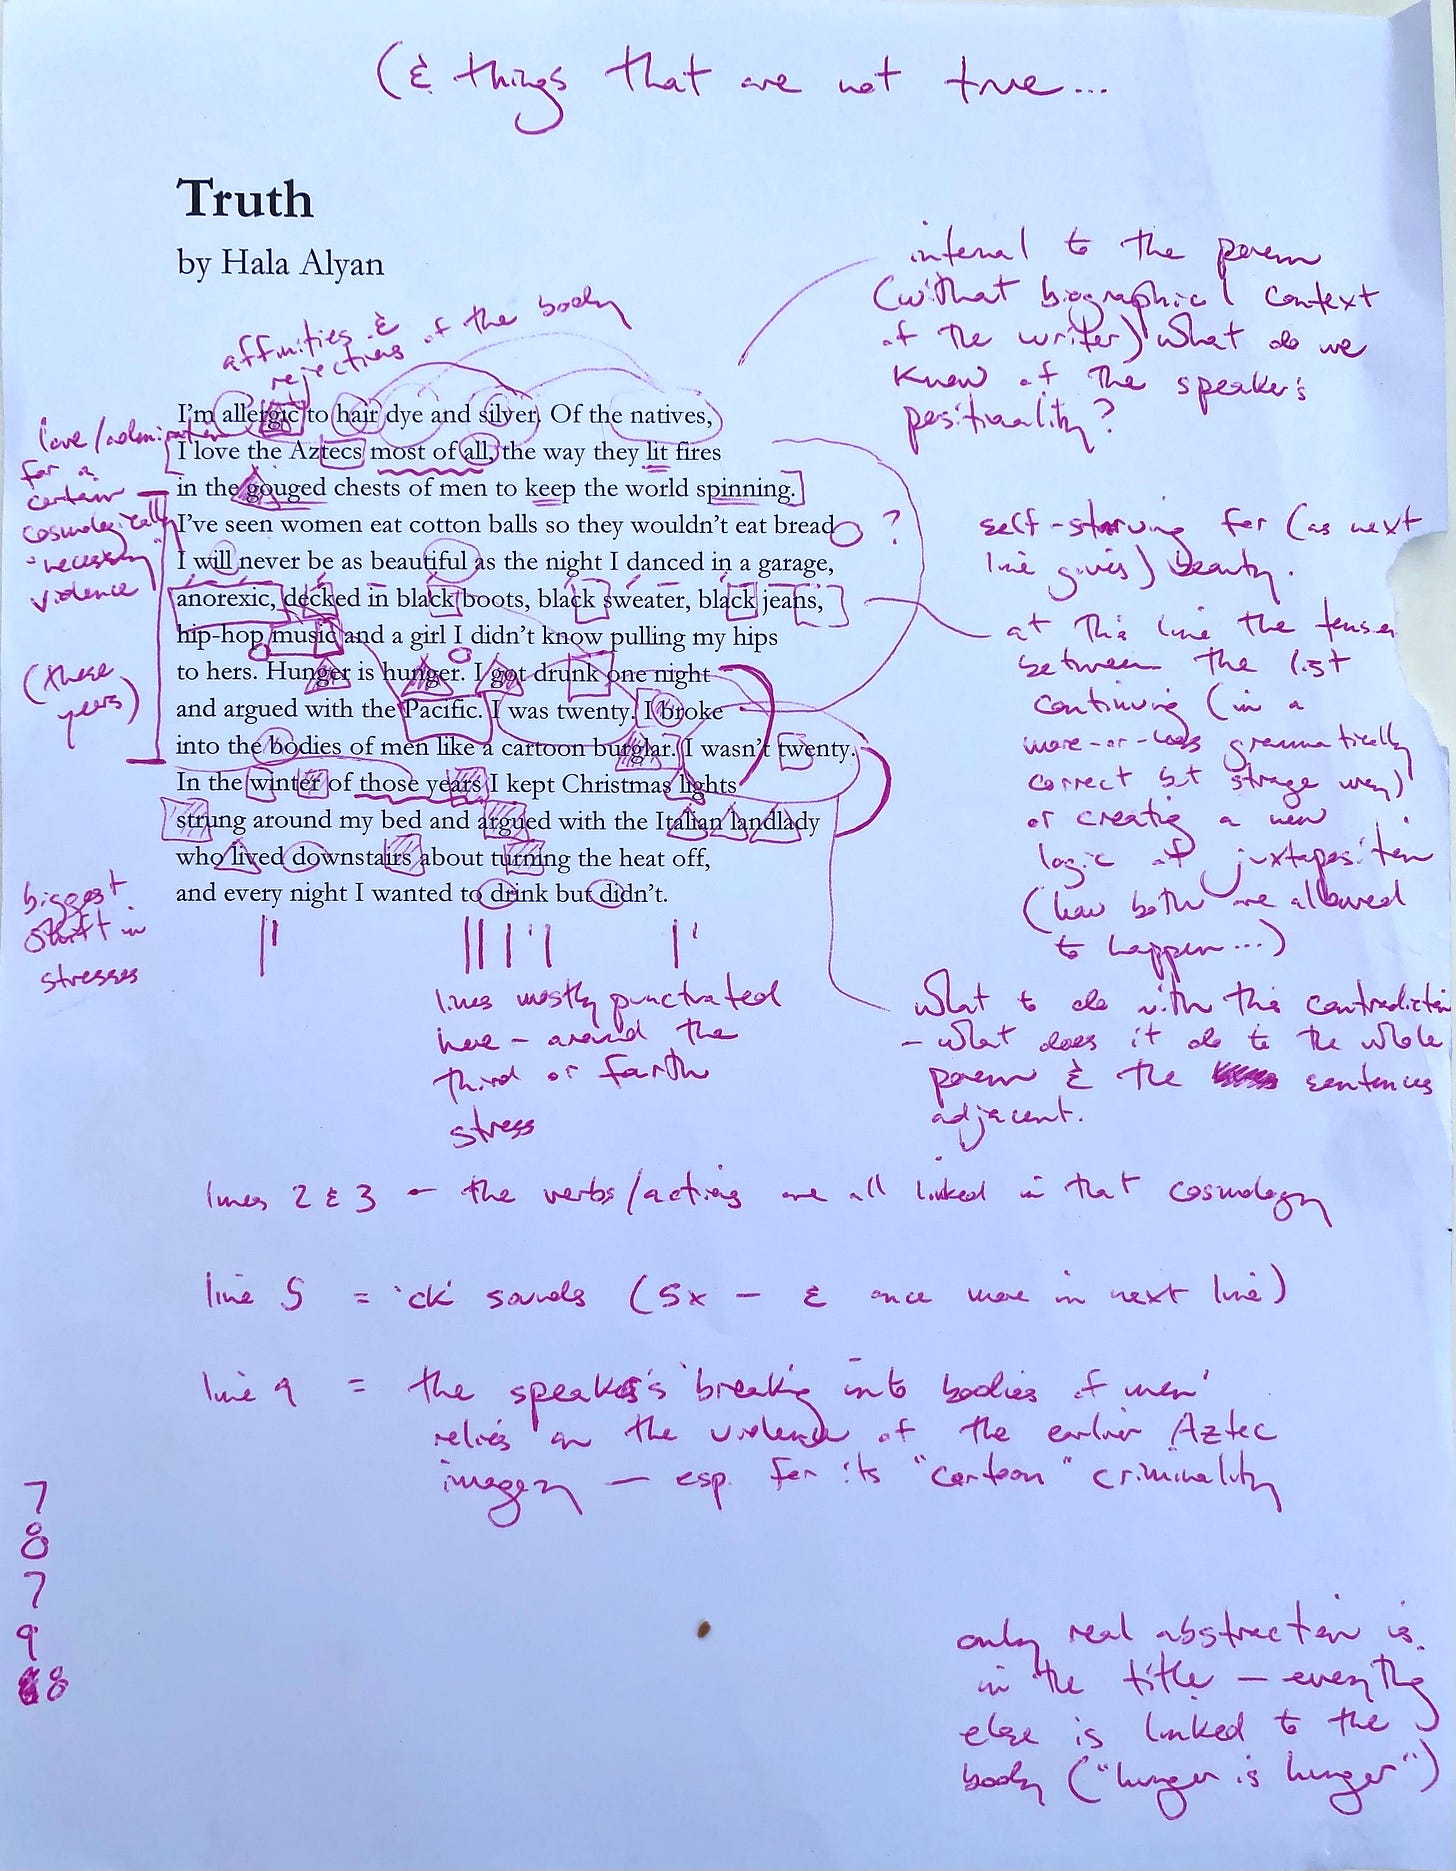 (& things that are not true...
Truth
by Hala Alyan
affinities &
rejections of the body
internal to the poem
(without biographical context
of the writer) what do we
know of the speaker's
positionality?
I'm allergic to hair dye and silver. Of the natives,
I love the Aztecs most of all, the way they lit fires
in the gouged chests of men to keep the world spinning.
I've seen women eat cotton balls so they wouldn't eat bread
I will never be as beautiful as the night I danced in a garage,
anorexic, decked in black boots, black sweater, black jeans,
hip-hop music and a girl I didn't know pulling my hips
to hers. Hunger is hunger. I got drunk one night
and argued with the Pacific. I was twenty. I broke
into the bodies of men like a cartoon burglar. I wasn't twenty.
In the winter of those years I kept Christmas lights
strung around my bed and argued with the Italian landlady
who lived downstairs about turning the heat off,
and every night I wanted to drink but didn't.
love/admiration
for a
certain
cosmologically
"necessary"
violence
(these
years)
biggest
shift in
stresses
?
self-starving for (as next
line gives) beauty.
at this line the tension
between the list
continuing (in a
more-or-less grammatically
correct but strange way)
or creating a new
logic of juxtaposition
(how both are allowed
to happen...)
what to do with this contradiction
- what does it do to the whole
poem & the sentences
adjacent.
lines mostly punctuated
here - around the
third or fourth
stress
lines 2 & 3 - the verbs/actions are all linked in that cosmology
line 5 = 'ck' sounds (5x - & once more in next line)
line 9 = the speaker's 'breaking into bodies of men'
relies on the violence of the earlier Aztec
imagery - esp. for its "cartoon" criminality
7
8
7
9
8
only real abstraction is
in the title - everything
else is linked to the
body ("hunger is hunger")